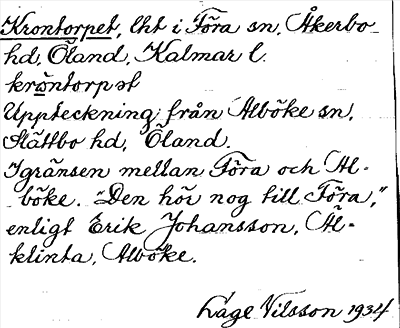 Krontorpet, lht i Föra sn, Åkerbo
hd, Öland, Kalmar l.
krontorpət
Uppteckning från Alböke sn,
Slättbo hd, Öland.
I gränsen mellan Föra och Al-
böke. "Den hör nog till Föra,"
enligt Erik Johansson, Al-
klinta, Alböke.
Låge Nilsson 1934